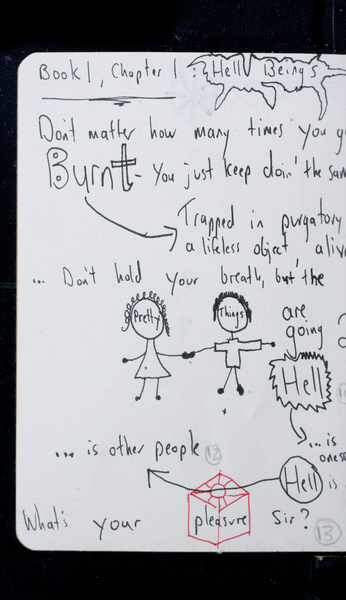 Book 1, Chapter 1: Hell Beings
Don't matter how many times you g
Burnt - You just keep doin' the sam
Trapped in purgatory
a lifeless object, alive
... Don't hold your breath, but the
Pretty Things are
going
Hell
... is
ones
... is other people 12 Hell is
What's your pleasure Sir? 13